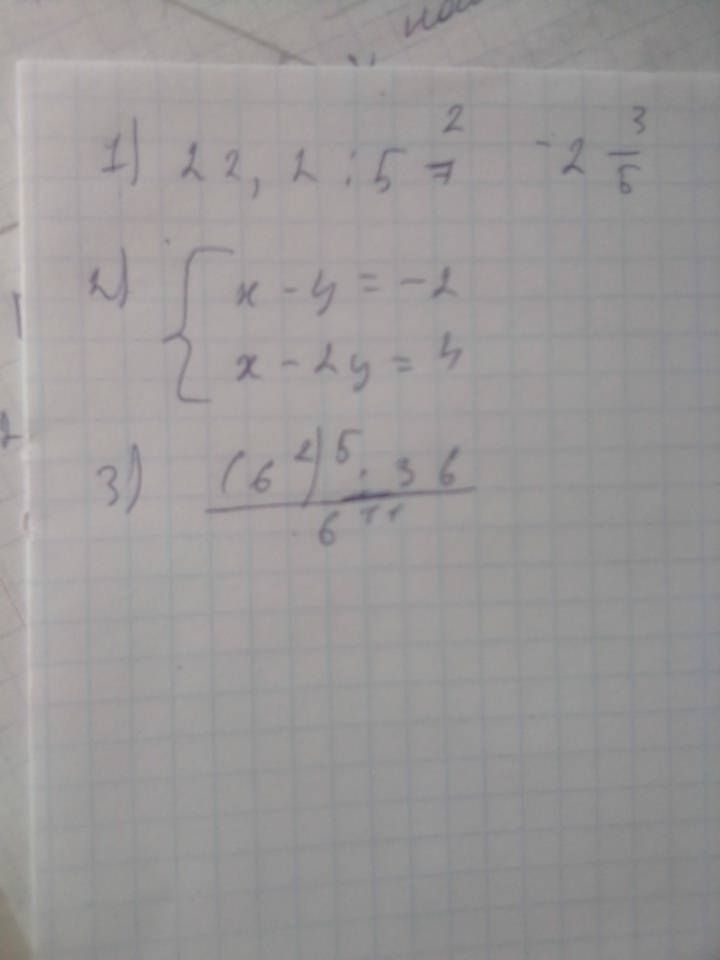 1) 22,2 : 5 2/7 - 2 3/5
2) { x - y = -2
x - 2y = 4
3) (6²)⁵ : 36
6¹¹